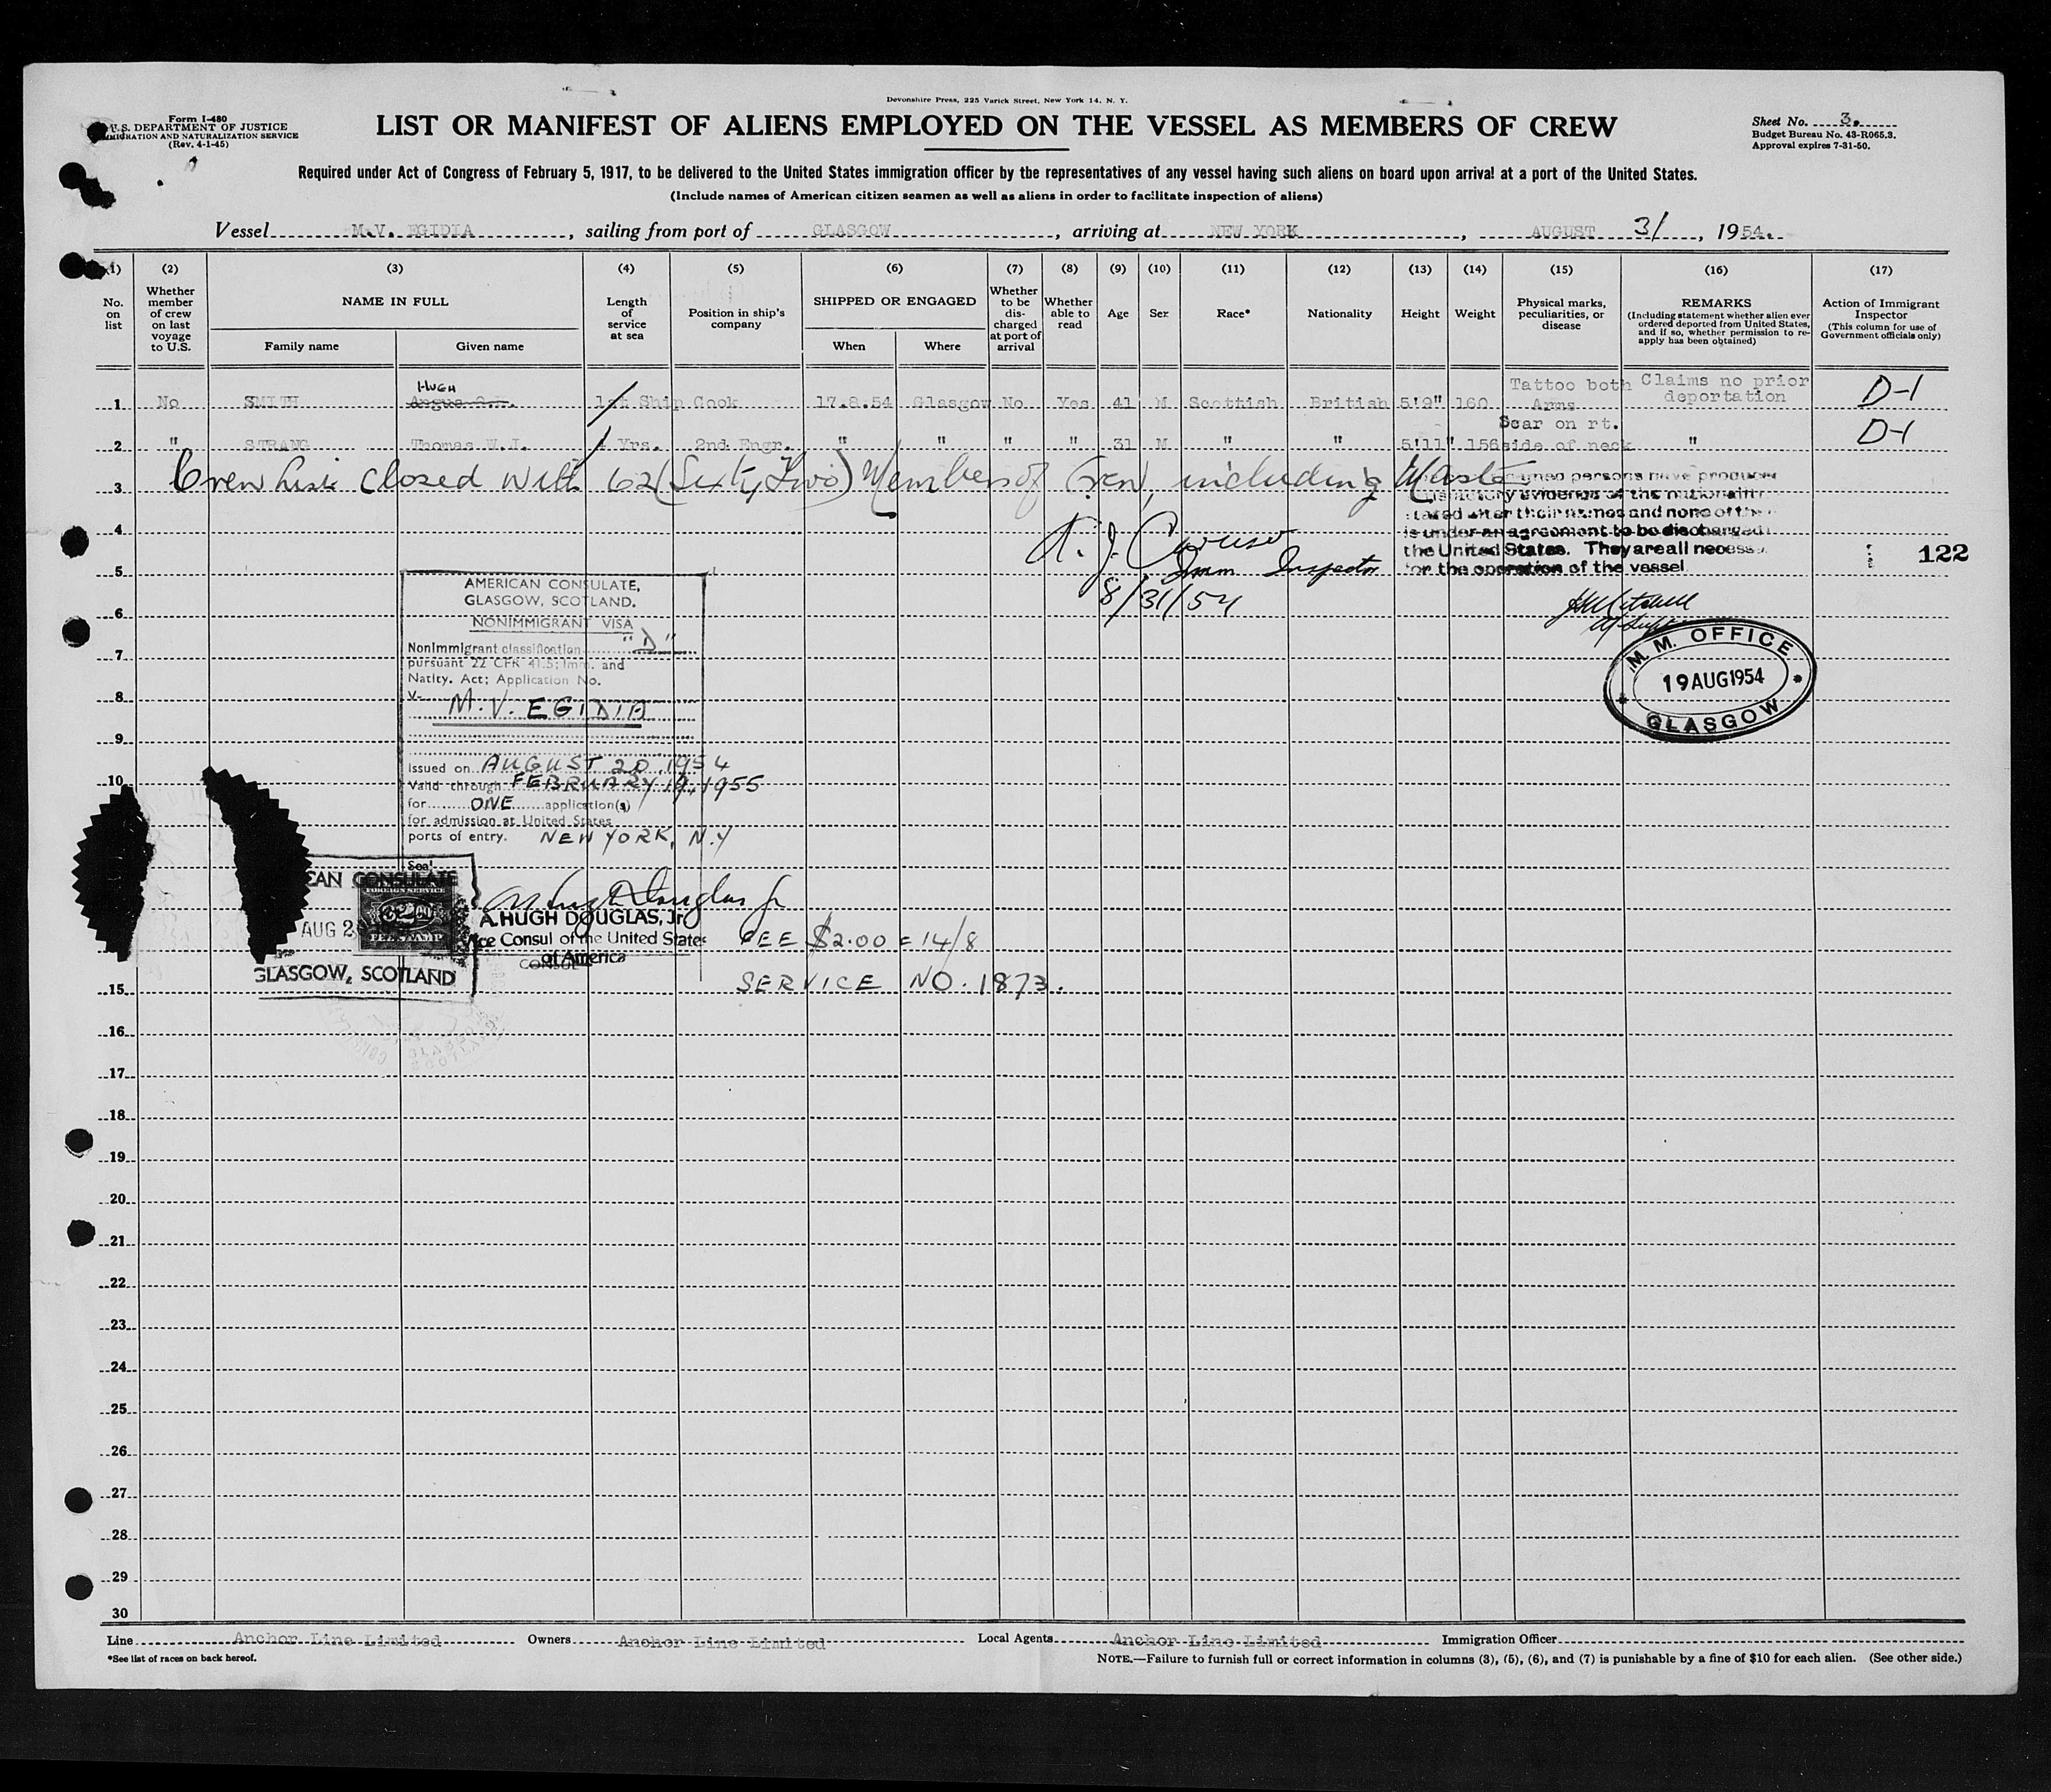 Devonshire Press, 225 Varick Street, New York 14, N. Y.
Form I-480
U.S. DEPARTMENT OF JUSTICE
IMMIGRATION AND NATURALIZATION SERVICE
(Rev. 4-1-45)
LIST OR MANIFEST OF ALIENS EMPLOYED ON THE VESSEL AS MEMBERS OF CREW
Sheet No. 3.
Budget Bureau No. 43-R065.3.
Approval expires 7-31-50.
Required under Act of Congress of February 5, 1917, to be delivered to the United States immigration officer by the representatives of any vessel having such aliens on board upon arrival at a port of the United States.
(Include names of American citizen seamen as well as aliens in order to facilitate inspection of aliens)
Vessel M.V. EGIDIA, sailing from port of GLASGOW, arriving at NEW YORK, AUGUST 31, 1954.
(1) (2) (3) (4) (5) (6) (7) (8) (9) (10) (11) (12) (13) (14) (15) (16) (17)
No. on list
Whether member of crew on last voyage to U.S.
NAME IN FULL
Family name Given name
Length of service at sea
Position in ship's company
SHIPPED OR ENGAGED
When Where
Whether to be discharged at port of arrival
Whether able to read
Age
Sex
Race*
Nationality
Height
Weight
Physical marks, peculiarities, or disease
REMARKS
(Including statement whether alien ever ordered deported from United States, and if so, whether permission to reapply has been obtained)
Action of Immigrant Inspector
(This column for use of Government officials only)
HUGH
1 No SMITH 1st Ship Cook 17.8.54 Glasgow No Yes 41 M Scottish British 5'9" 160 Tattoo both Arms Claims no prior deportation D-1
2 " STRANG Thomas W.I. Yrs. 2nd Engr. " " " " 31 M " " 5'11" 156 Scar on rt. side of neck " D-1
3 Crew list closed with 62 (Sixty Two) Members of Crew, including Master
named persons have produced
satisfactory evidence of the nationality
stated after their names and none of them
is under an agreement to be discharged in
the United States. They are all necessary
for the operation of the vessel
122
4
Caruso
Imm Inspector
8/31/54
5
6
7
8
9
10
AMERICAN CONSULATE,
GLASGOW, SCOTLAND.
NONIMMIGRANT VISA
Nonimmigrant classification "D"
pursuant 22 CFR 41.5; Imm. and
Natlty. Act; Application No.
V- M.V. EGIDIA
Issued on AUGUST 20, 1954
Valid through FEBRUARY 19, 1955
for ONE application(s)
for admission at United States
ports of entry. NEW YORK, N.Y
Seal
M. M. OFFICE
19 AUG 1954
GLASGOW
CAN CONSULATE
FOREIGN SERVICE
FEE STAMP
AUG 2
GLASGOW, SCOTLAND
A. Hugh Douglas Jr
A. HUGH DOUGLAS, Jr
Vice Consul of the United States
of America
CONSUL
FEE $2.00 = 14/8
SERVICE NO. 1873.
15
16
17
18
19
20
21
22
23
24
25
26
27
28
29
30
Line Anchor Line Limited Owners Anchor Line Limited Local Agents Anchor Line Limited Immigration Officer
*See list of races on back hereof.
NOTE.—Failure to furnish full or correct information in columns (3), (5), (6), and (7) is punishable by a fine of $10 for each alien. (See other side.)